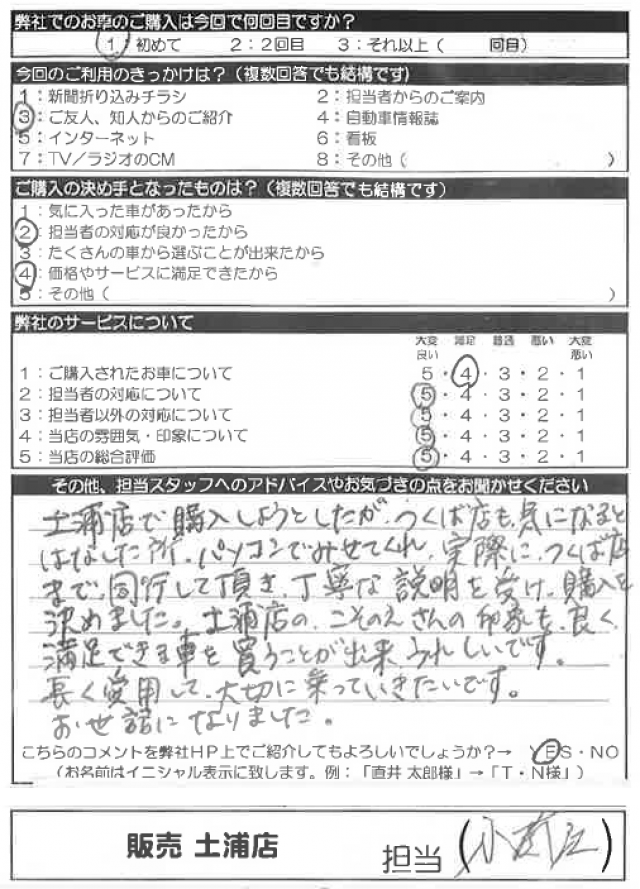 弊社でのお車のご購入は今回で何回目ですか？
1：初めて 2：2回目 3：それ以上（ 回目）
今回のご利用のきっかけは？（複数回答でも結構です）
1：新聞折り込みチラシ 2：担当者からのご案内
3：ご友人、知人からのご紹介 4：自動車情報誌
5：インターネット 6：看板
7：TV／ラジオのCM 8：その他（ ）
ご購入の決め手となったものは？（複数回答でも結構です）
1：気に入った車があったから
2：担当者の対応が良かったから
3：たくさんの車から選ぶことが出来たから
4：価格やサービスに満足できたから
5：その他（ ）
弊社のサービスについて
大変良い 満足 普通 悪い 大変悪い
1：ご購入されたお車について 5・4・3・2・1
2：担当者の対応について 5・4・3・2・1
3：担当者以外の対応について 5・4・3・2・1
4：当店の雰囲気・印象について 5・4・3・2・1
5：当店の総合評価 5・4・3・2・1
その他、担当スタッフへのアドバイスやお気づきの点をお聞かせください
土浦店で購入しようとしたが、つくば店も気になると
はなした所、パソコンでみせてくれ、実際に、つくば店
まで同行して頂き、丁寧な説明を受け、購入を
決めました。土浦店の、こそのえさんの印象も、良く、
満足できる車を買うことが出来、うれしいです。
長く愛用して、大切に乗っていきたいです。
お世話になりました。
こちらのコメントを弊社HP上でご紹介してもよろしいでしょうか？→ YES・NO
（お名前はイニシャル表示に致します。例：「直井 太郎様」→「T・N様」）
販売 土浦店 担当（ ）